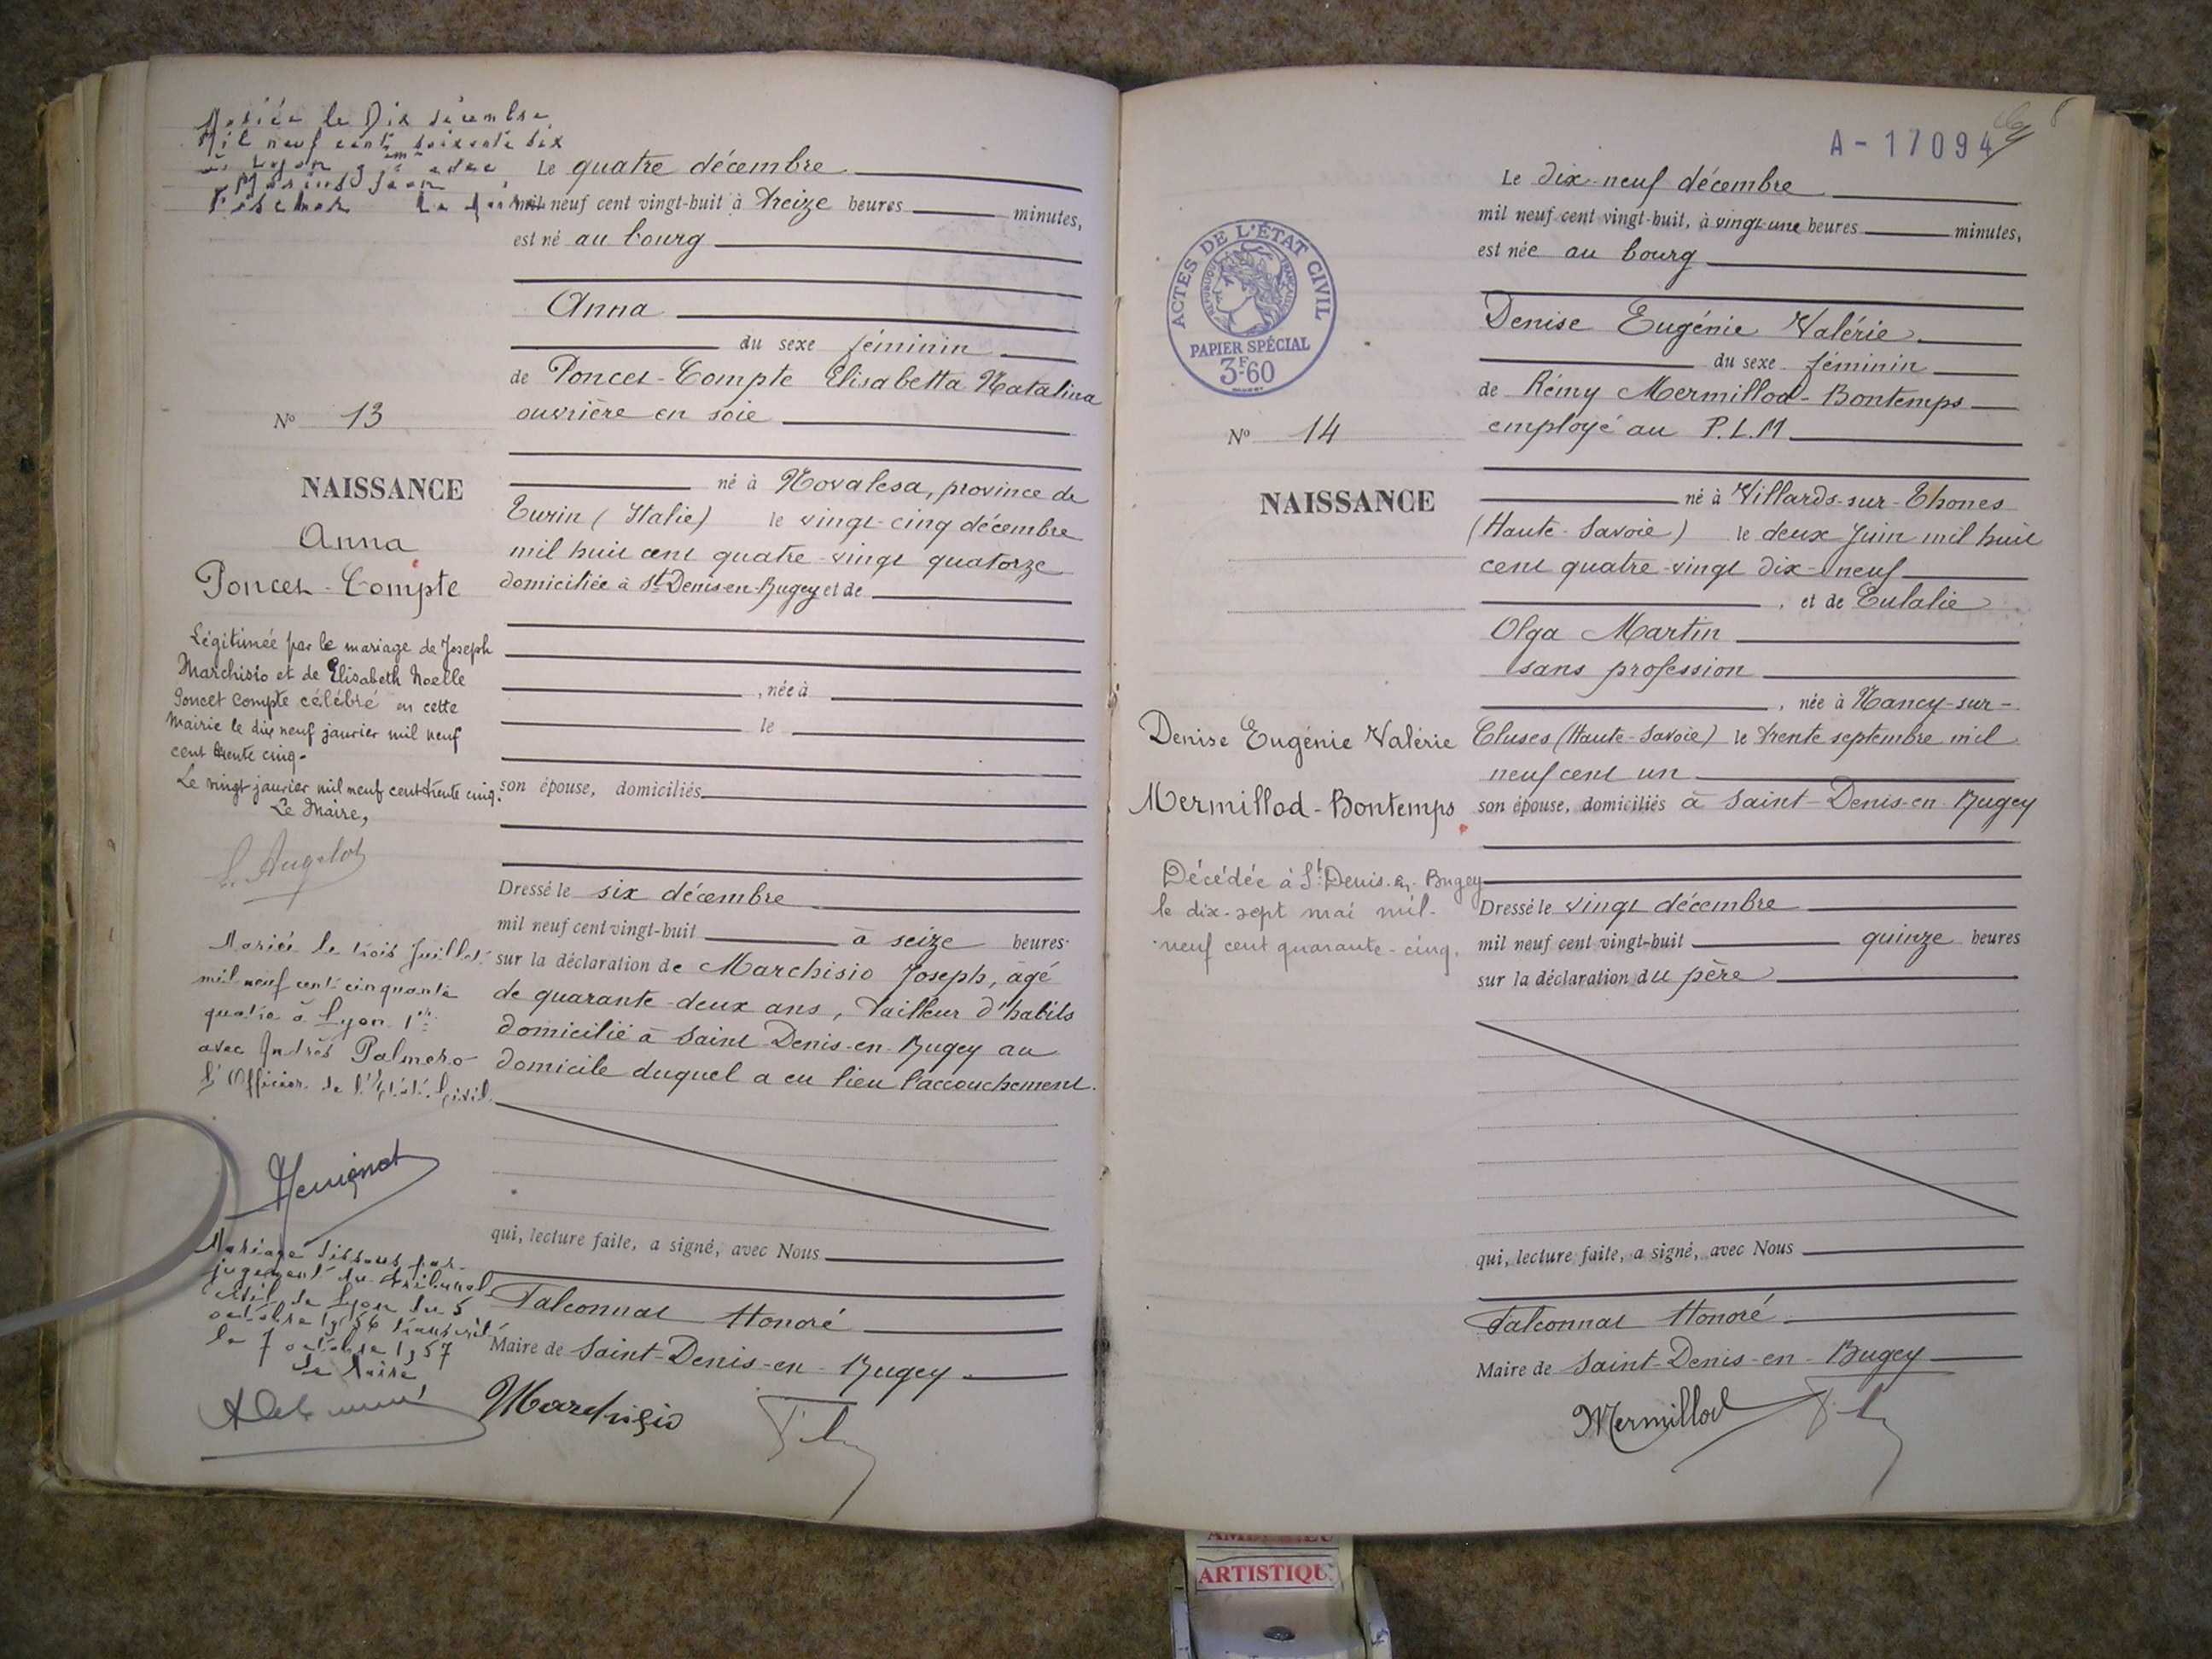 Mariée le Dix décembre
Mil neuf cent soixante six
à Lyon 3em avec
Jean
Le quatre décembre
mil neuf cent vingt-huit à treize heures minutes,
est né au bourg
Anna
du sexe féminin
de Poncet-Compte Elisabetta Natalina
ouvrière en soie
né à Novalesa, province de
Turin (Italie) le vingt-cinq décembre
mil huit cent quatre-vingt quatorze
domiciliée à St Denis-en-Bugey et de
, née à
le
son épouse, domiciliés
Dressé le six décembre
mil neuf cent vingt-huit à seize heures
sur la déclaration de Marchisio Joseph, âgé
de quarante-deux ans, tailleur d'habits
domicilié à Saint-Denis-en-Bugey au
domicile duquel a eu lieu l'accouchement.
qui, lecture faite, a signé, avec Nous
Falconnat Honoré
Maire de Saint-Denis-en-Bugey
Marchisio
No 13
NAISSANCE
Anna
Poncet-Compte
Légitimée par le mariage de Joseph
Marchisio et de Elisabeth Noelle
Poncet Compte célébré en cette
Mairie le dix neuf janvier mil neuf
cent trente cinq.
Le vingt janvier mil neuf cent trente cinq.
Le Maire,
Mariée le trois Juillet
mil neuf cent cinquante
quatre à Lyon 1er
avec Andrès Palmero
L'Officier de l'Etat Civil
Mariage dissous par
jugement du tribunal
civil de Lyon du 5
octobre 1956 transcrit
le 7 octobre 1957
Le Maire
A-17094
8
ACTES DE L'ÉTAT CIVIL
RÉPUBLIQUE FRANÇAISE
PAPIER SPÉCIAL
3F60
Le dix-neuf décembre
mil neuf cent vingt-huit, à vingt-une heures minutes,
est née au bourg
Denise Eugénie Valérie
du sexe féminin
de Rémy Mermillod-Bontemps
employé au P.L.M
né à Villards-sur-Thones
(Haute-Savoie) le deux Juin mil huit
cent quatre-vingt dix-neuf
, et de Eulalie
Olga Martin
sans profession
, née à Nancy-sur-
Cluses (Haute-Savoie) le trente septembre mil
neuf cent un
son épouse, domiciliés à Saint-Denis-en-Bugey
Dressé le vingt décembre
mil neuf cent vingt-huit quinze heures
sur la déclaration du père
qui, lecture faite, a signé, avec Nous
Falconnat Honoré
Maire de Saint-Denis-en-Bugey
Mermillod
No 14
NAISSANCE
Denise Eugénie Valérie
Mermillod-Bontemps
Décédée à St Denis-en-Bugey
le dix-sept mai mil
neuf cent quarante-cinq.
ARTISTIQU